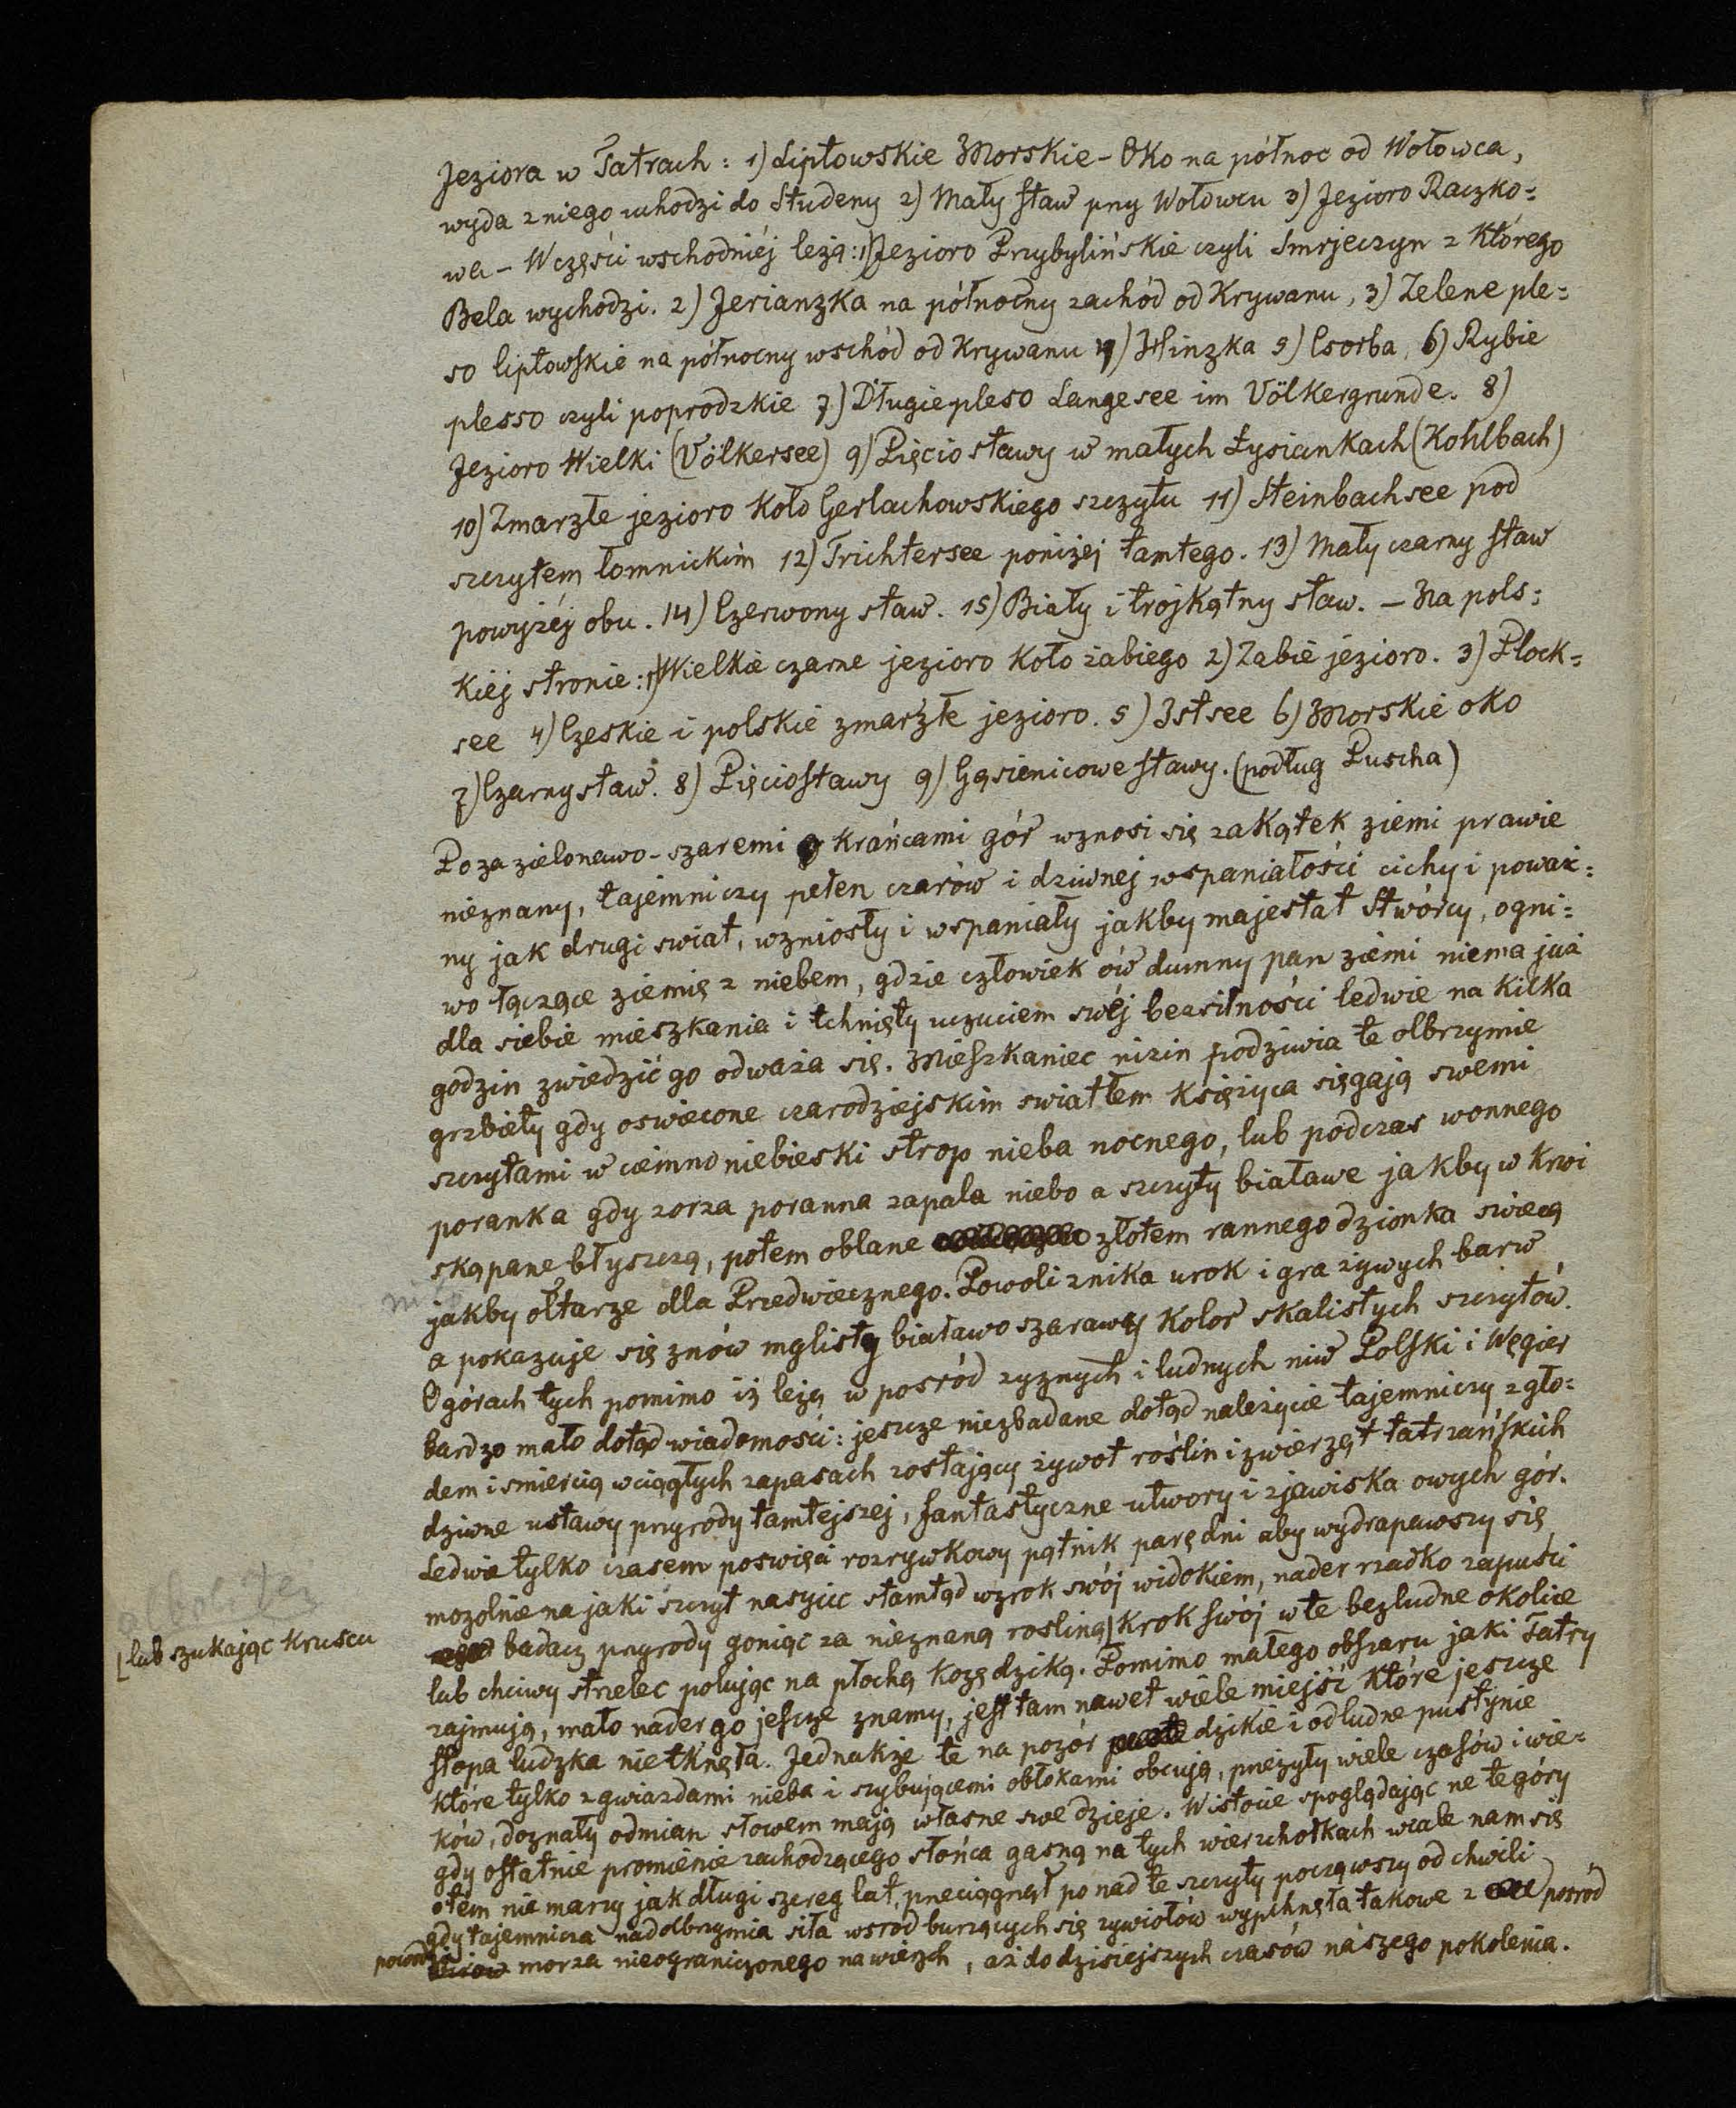 Jeziora w Tatrach: 1) Liptowskie Morskie-Oko na północ od Wołowca,
wyda z niego uchodzi do Studeny 2) Mały staw przy Wołowcu 3) Jezioro Raczko=
wa - W części wschodniéj leżą: 1) Jezioro Przybylińskie czyli Smrjeczyn z którego
Bela wychodzi. 2) Jerianzka na północny zachód od Krywanu, 3) Zelene ple=
so liptowskie na północny wschód od Krywanu 4) Hinzka 5) Csorba 6) Rybie
plesso czyli poprodzkie 7) Długie pleso Langesee im Völkergrunde. 8)
Jezioro Wielki (Völkersee) 9) Pięcio stawy w małych Łysiankach (Kohlbach)
10) Zmarzłe jezioro koło Gerlachowskiego szczytu 11) Steinbachsee pod
szczytem łomnickim 12) Trichtersee poniżej tamtego. 13) Mały czarny staw
powyżéj obu. 14) Czerwony staw. 15) Biały i trojkątny staw. - Na pols=
kiéj stronie: 1) Wielkie czarne jezioro koło żabiego 2) Żabie jezioro. 3) Plock=
see 4) Czeskie i polskie zmarzłe jezioro. 5) Istsee 6) Morskie oko
7) Czarny staw. 8) Pięciostawy 9) Gąsienicowe stawy. (podług Puscha)
Poza zielonawo-szaremi krańcami gór wznosi się zakątek ziemi prawie
nieznany, tajemniczy pełen czarów i dziwnej wspaniałości cichy i poważ=
ny jak drugi swiat, wzniosły i wspaniały jakby majestat Stwórcy, ogni=
wo łączące ziemię z niebem, gdzie człowiek ów dumny pan ziemi niema już
dla siebie mieszkania i tchnięty uczuciem swéj bezsilności ledwie na kilka
godzin zwiedzić go odważa się. Mieszkaniec nizin podziwia te olbrzymie
grzbiety gdy oswiecone czarodziejskim swiatłem księżyca sięgają swemi
szczytami w ciemno niebieski strop nieba nocnego, lub podczas wonnego
poranka gdy zorza poranna zapala niebo a szczyty białawe jakby w krwi
skąpane błyszczą, potem oblane złotem rannego dzionka swiecą
jakby ołtarze dla Przedwiecznego. Powoli znika urok i gra żywych barw
a pokazuje się znów mglisty białawo szarawy kolor skalistych szczytów.
O górach tych pomimo iż leżą w pośród żyznych i ludnych niw Polski i Węgier
bardzo mało dotąd wiadomości: jeszcze niezbadane dotąd należycie tajemniczy z gło=
dem i smiercią w ciągłych zapasach zostający żywot roślin i zwierząt tatrzańskich
dziwne ustawy przyrody tamtejszej, fantastyczne utwory i zjawiska owych gór.
Ledwie tylko czasem poswięci rozrywkowy pątnik parę dni aby wydrapawszy się
mozolnie na jaki szczyt nasycić stamtąd wzrok swój widokiem, nader rzadko zapuści
badacz przyrody goniąc za nieznaną rosliną krok swój w te bezludne okolice
[lub szukając kruscu
lub chciwy strzelec polując na płochą kozę dziką. Pomimo małego obszaru jaki Tatry
zajmują, mało nader go jeszcze znamy, jest tam nawet wiele miejść które jeszcze
stopa ludzka nie tknęła. Jednakże te na pozór dzikie i odludne pustynie
które tylko z gwiazdami nieba i szybującemi obłokami obcują, przeżyły wiele czasów i wie=
ków, doznały odmian słowem mają własne swe dzieje. W istocie spoglądając na te góry
gdy ostatnie promienie zachodzącego słońca gasną na tych wierzchołkach wcale nam się
o tém nie marzy jak długi szereg lat, przeciągnął ponad te szczyty począwszy od chwili
gdy tajemnicza nadolbrzymia siła wsród burzących się żywiołów wypchnęła takowe z pośród
morza nieograniczonego na wierzch, aż do dzisiejszych czasów naszego pokolenia.